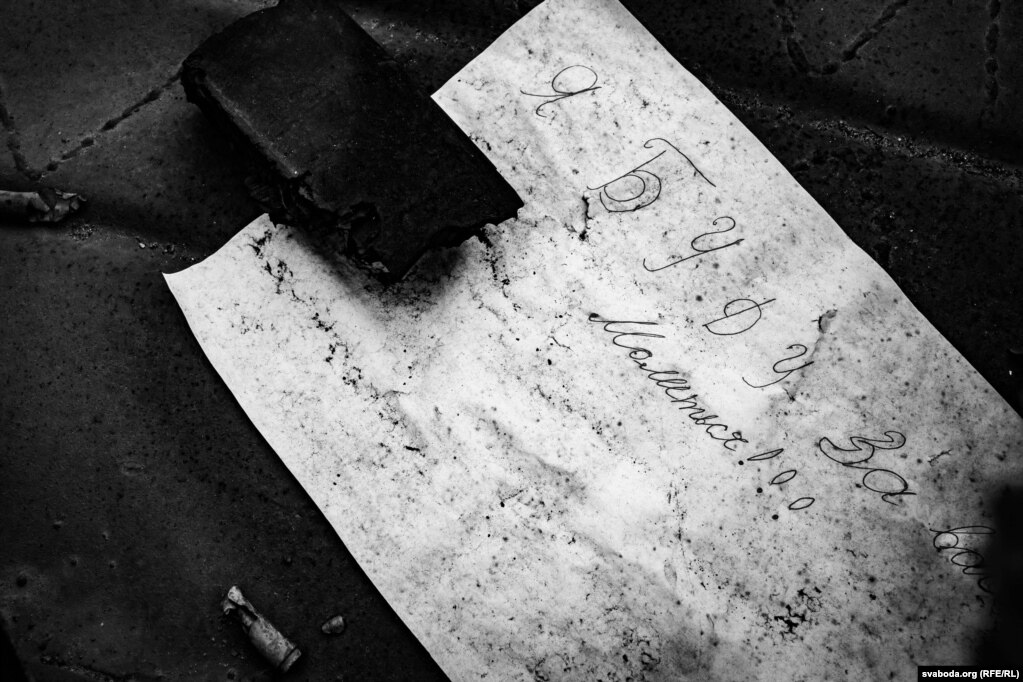 Я БУДУ За вас
Молеться!!!
svaboda.org (RFE/RL)